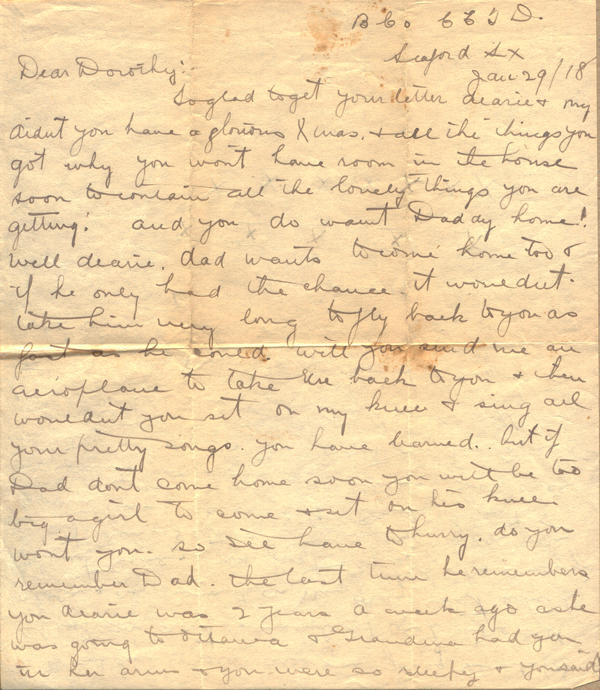 B Co C E T D.
Seaford Sx
Jan 29/18
Dear Dorothy:
So glad to get your letter dearie & my
didn't you have a glorious Xmas, & all the things you
got why you won't have room in the house
soon to contain all the lovely things you are
getting! and you do want Daddy home!
well dearie, dad wants to come home too &
if he only had the chance it wouldnt
take him very long to fly back to you as
fast as he could will you send me an
aeroplane to take me back to you & then
wouldnt you sit on my knee & sing all
your pretty songs. you have learned. but if
Dad dont come home soon you will be too
big a girl to come & set on his knee
wont you. so see have to hurry. do you
remember Dad. the last time he remembers
you dearie was 2 years a week ago as he
was going to Ottawa & Grandma had you
in her arms & you were so sleepy & you said